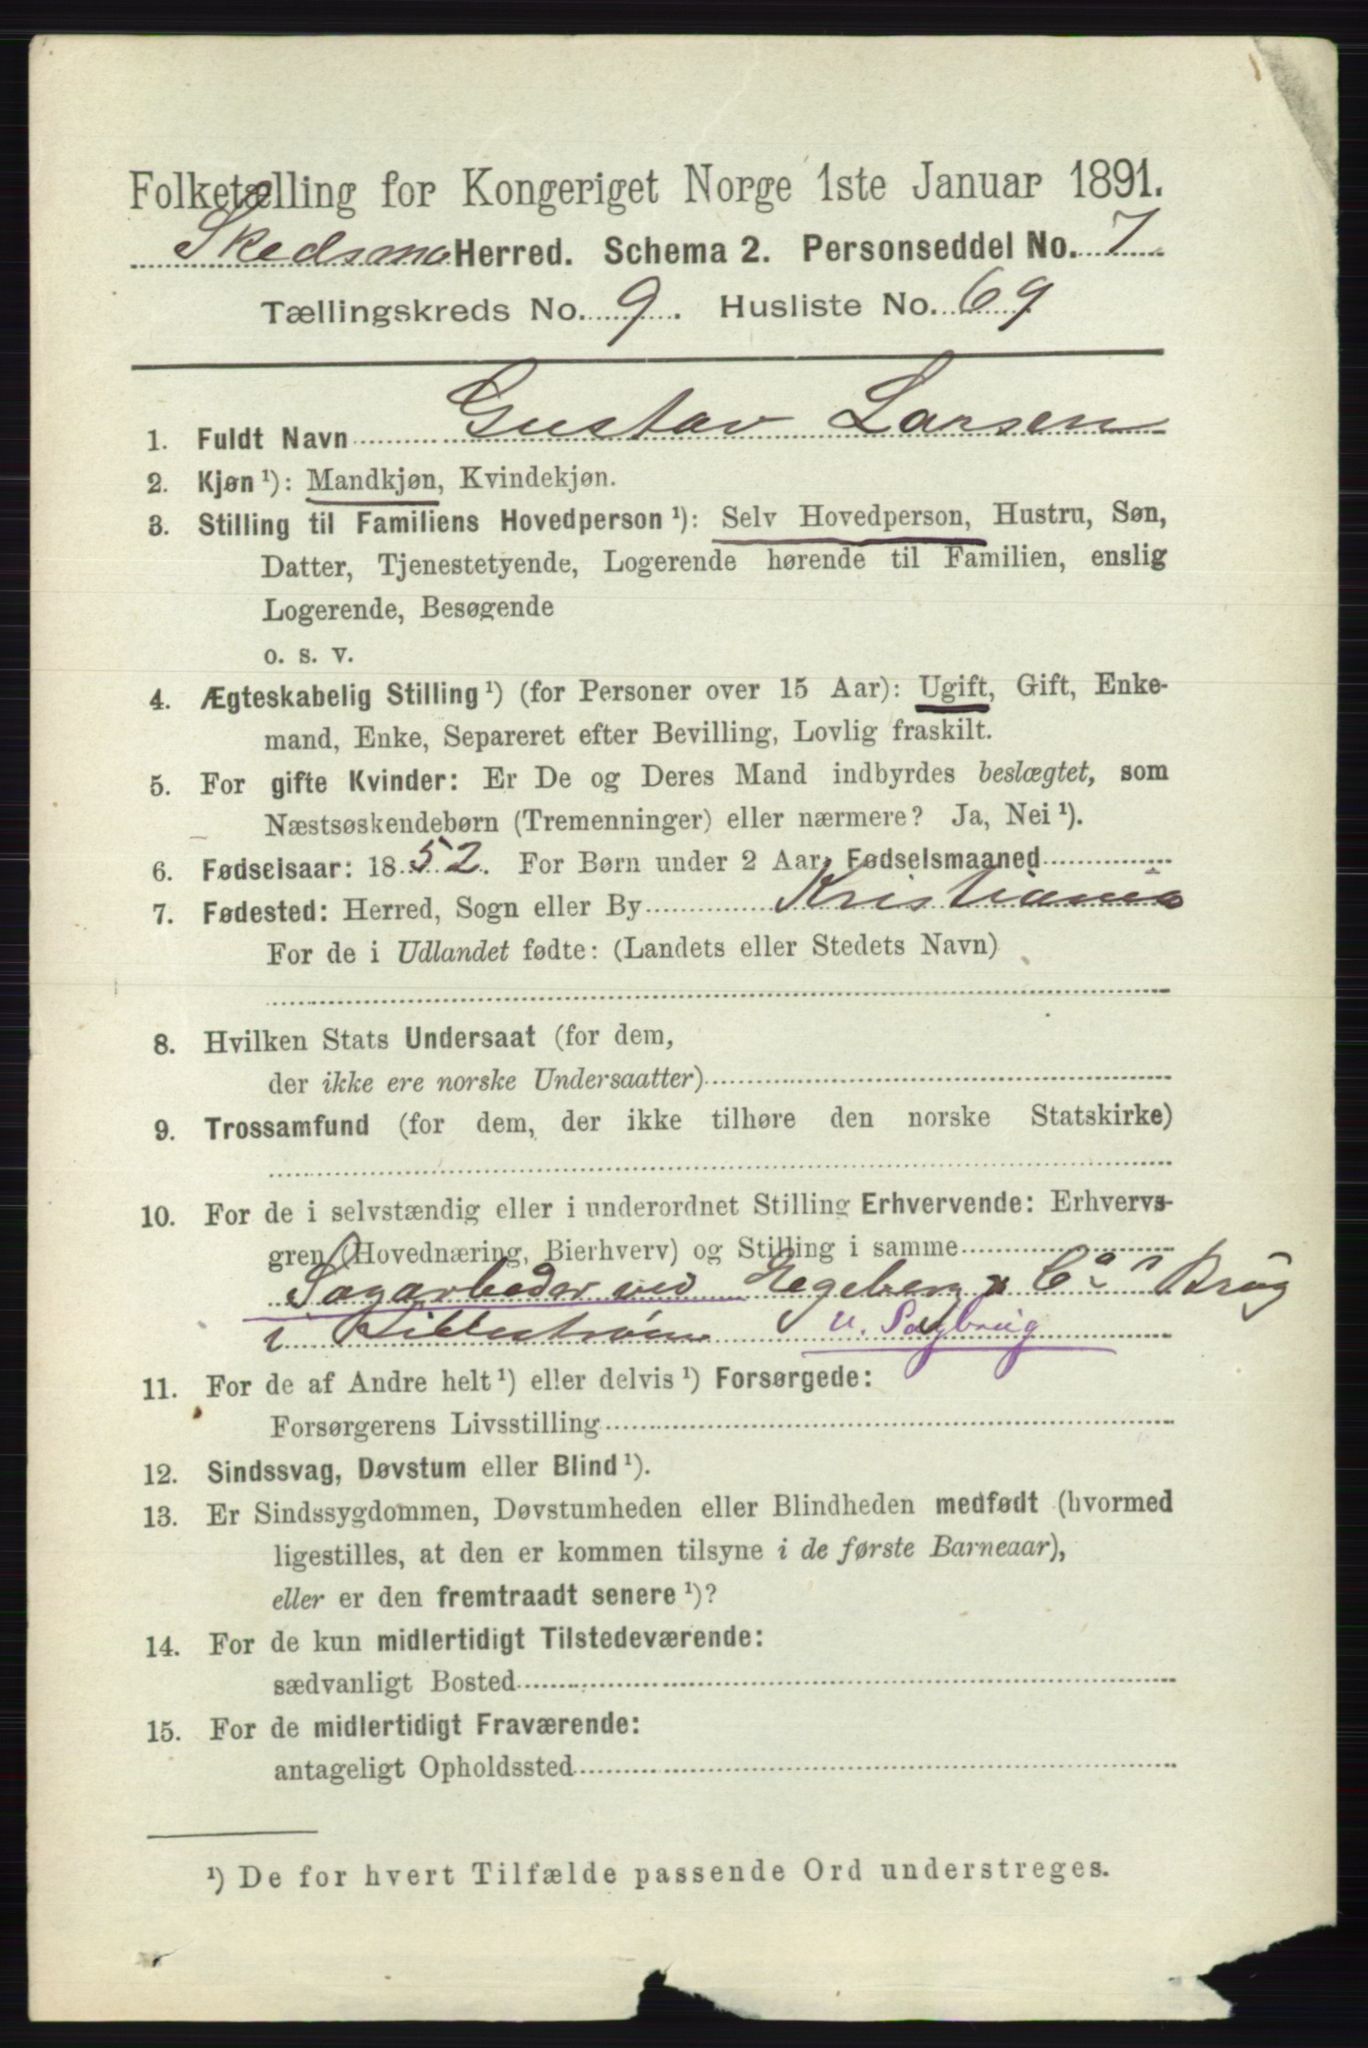 Folketælling for Kongeriget Norge 1ste Januar 1891.
Skedsmo Herred. Schema 2. Personseddel No. 7.
Tællingskreds No. 9. Husliste No. 69
1. Fuldt Navn Gustav Larsen
2. Kjøn ¹): Mandkjøn, Kvindekjøn.
3. Stilling til Familiens Hovedperson ¹): Selv Hovedperson, Hustru, Søn,
Datter, Tjenestetyende, Logerende hørende til Familien, enslig
Logerende, Besøgende
o. s. v.
4. Ægteskabelig Stilling ¹) (for Personer over 15 Aar): Ugift, Gift, Enke-
mand, Enke, Separeret efter Bevilling, Lovlig fraskilt.
5. For gifte Kvinder: Er De og Deres Mand indbyrdes beslægtet, som
Næstsøskendebørn (Tremenninger) eller nærmere? Ja, Nei ¹).
6. Fødselsaar: 1852. For Børn under 2 Aar, Fødselsmaaned
7. Fødested: Herred, Sogn eller By Kristiania
For de i Udlandet fødte: (Landets eller Stedets Navn)
8. Hvilken Stats Undersaat (for dem,
der ikke ere norske Undersaatter)
9. Trossamfund (for dem, der ikke tilhøre den norske Statskirke)
10. For de i selvstændig eller i underordnet Stilling Erhvervende: Erhvervs-
gren (Hovednæring, Bierhverv) og Stilling i samme
Sagarbeder ved Egeberg & Co's Brug
i Lillestrøm u. Sagbrug
11. For de af Andre helt ¹) eller delvis ¹) Forsørgede:
Forsørgerens Livsstilling
12. Sindssvag, Døvstum eller Blind ¹).
13. Er Sindssygdommen, Døvstumheden eller Blindheden medfødt (hvormed
ligestilles, at den er kommen tilsyne i de første Barneaar),
eller er den fremtraadt senere ¹)?
14. For de kun midlertidigt Tilstedeværende:
sædvanligt Bosted
15. For de midlertidigt Fraværende:
antageligt Opholdssted
¹) De for hvert Tilfælde passende Ord understreges.